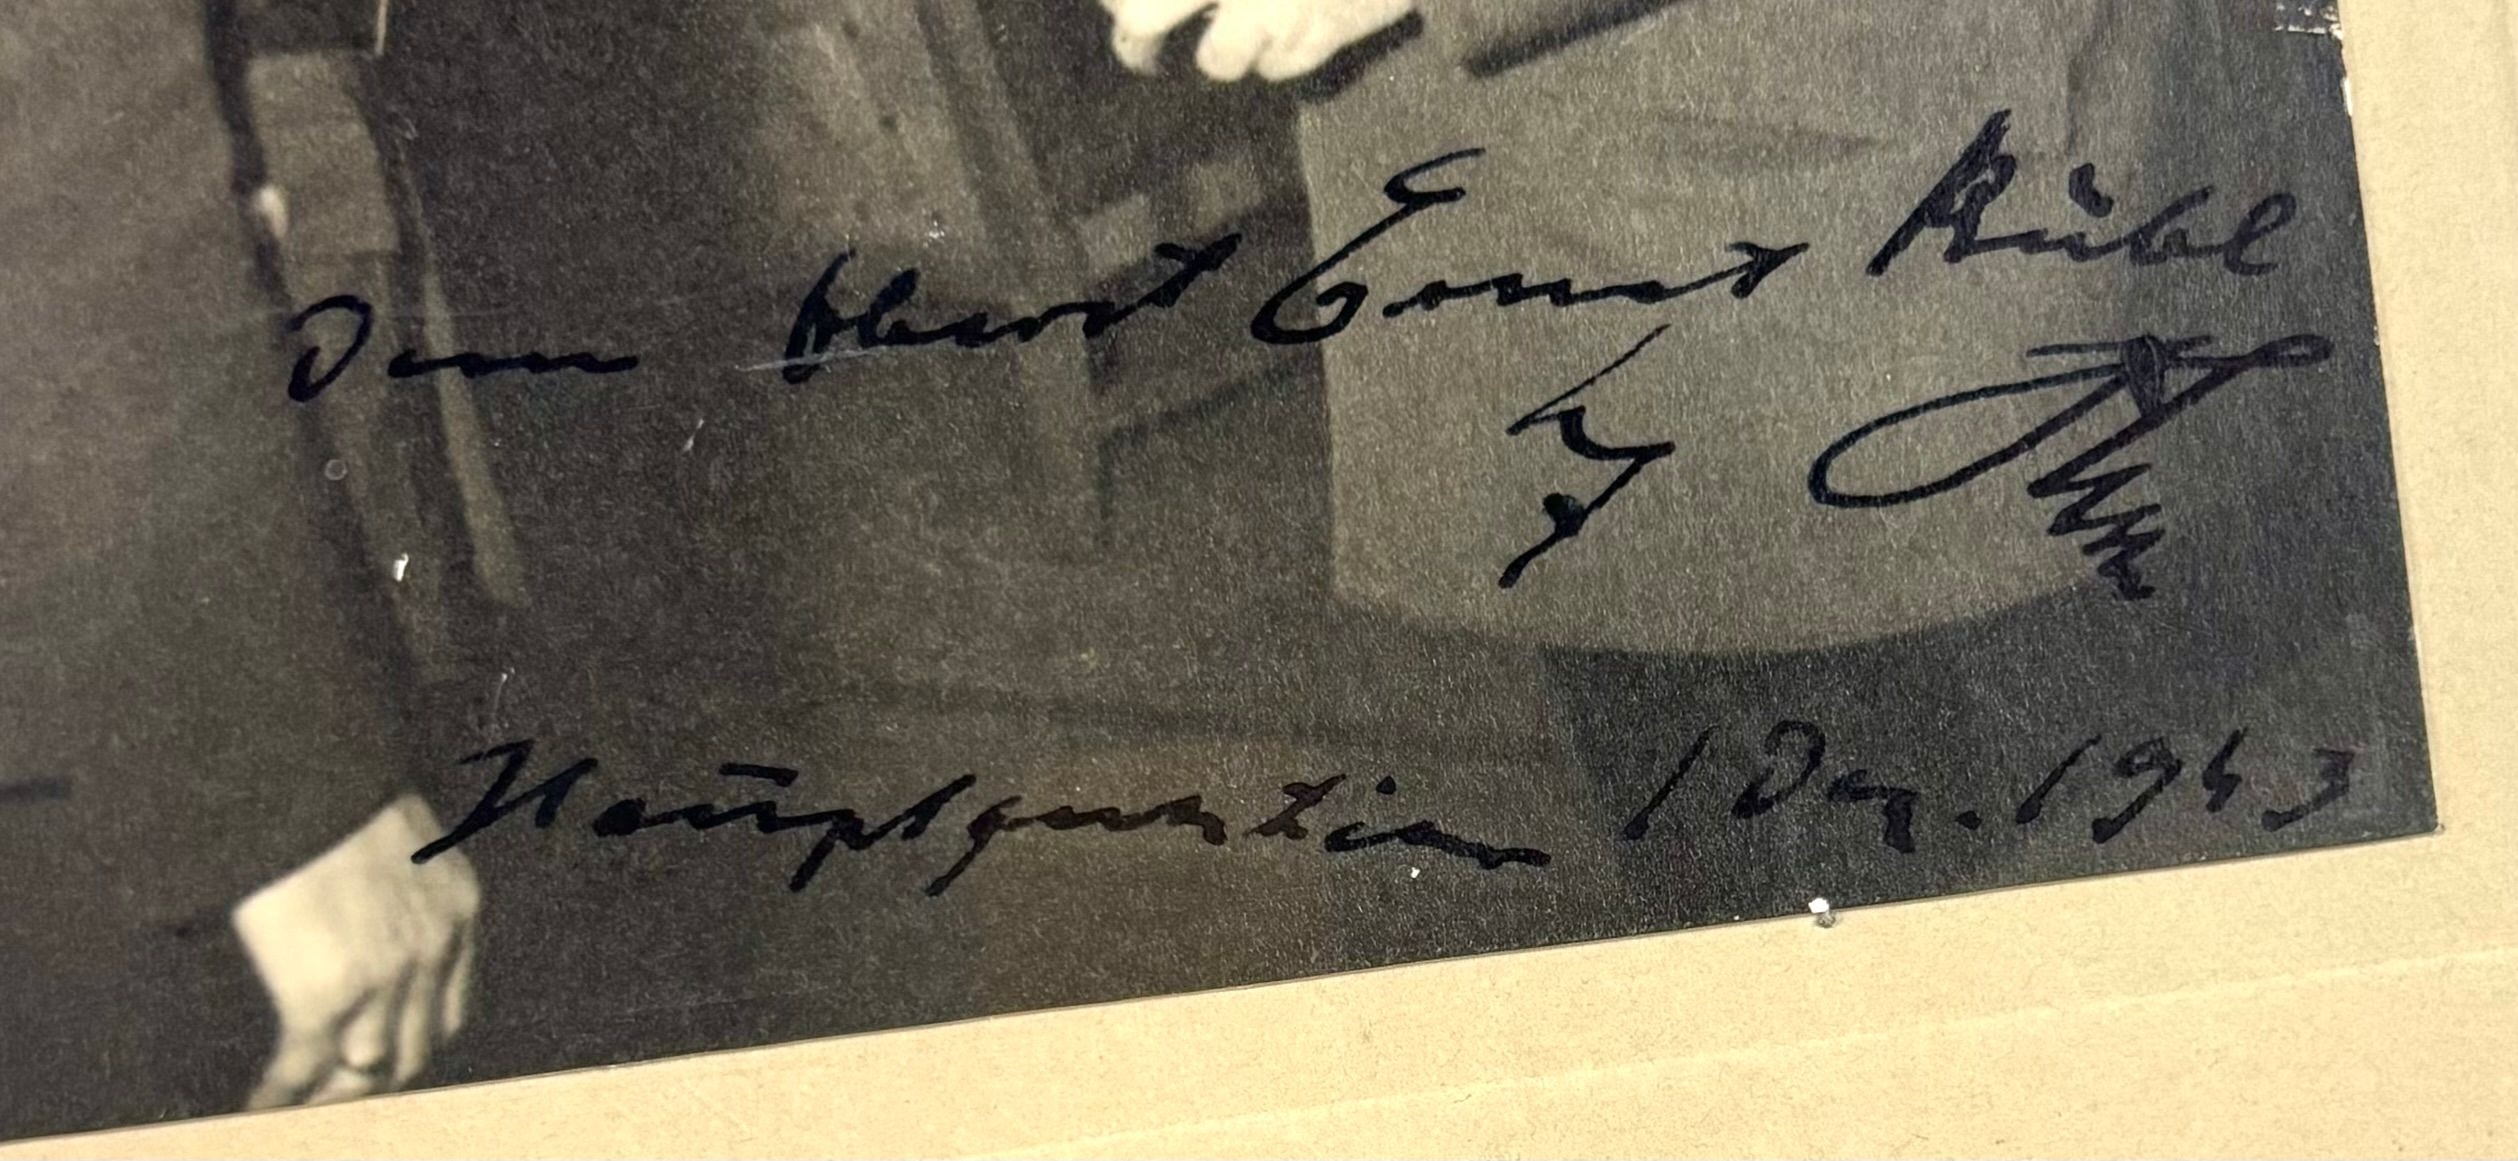 Dem Oberst Ernst Kübl
Hauptquartier 1 Dez. 1943